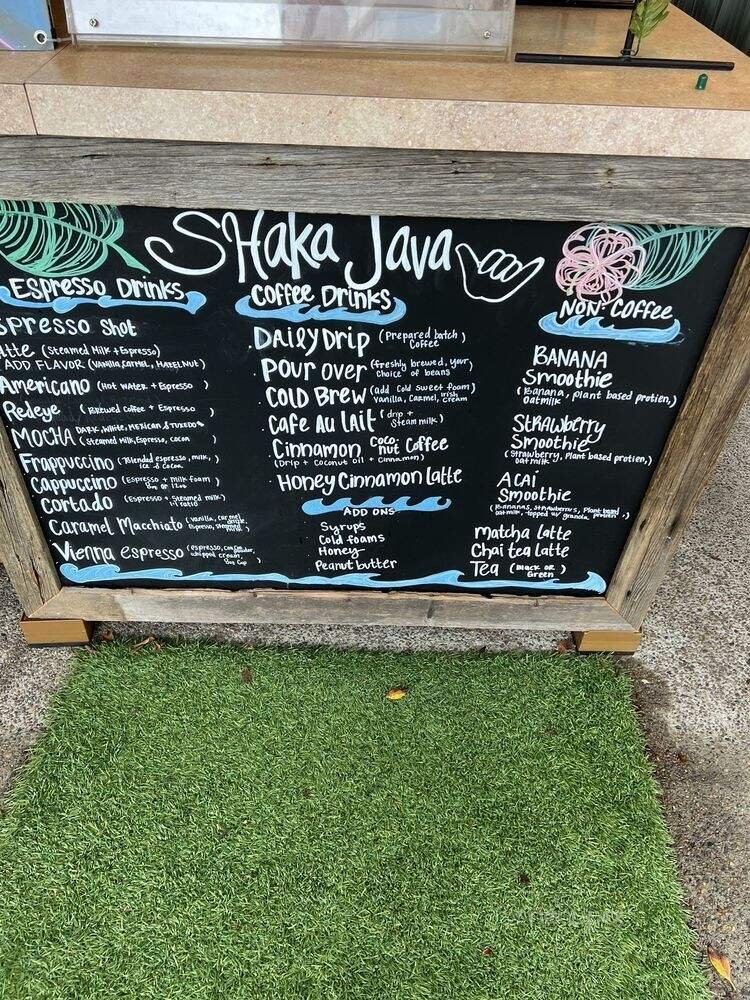 SHaka Java
Espresso Drinks
spresso Shot
tte (Steamed Milk + Espresso)
ADD FLAVOR (Vanilla, Carmel, HAZELNUT)
Americano (Hot water + Espresso)
Redeye (Brewed Coffee + Espresso)
MOCHA DARK, White, MEXICAN, & TUXEDO
(Steamed Milk, Espresso, Cocoa)
Frappuccino (Blended espresso, milk,
ice & Cocoa
Cappuccino (Espresso + milk foam)
8oz or 12oz
Cortado (Espresso + Steamed milk)
1:1 ratio
Caramel Macchiato (vanilla, carmel
Espresso, steamed
milk
Vienna espresso (espresso,
whipped cream,
8oz Cup)
Coffee Drinks
Daily Drip (Prepared batch)
Coffee
Pour Over (freshly brewed, your
choice of beans)
Cold Brew (add cold sweet foam)
Vanilla, Carmel, Irish
cream
Cafe Au lait (drip +
Steam milk)
Cinnamon Coco-
nut Coffee
(Drip + Coconut oil + Cinnamon)
Honey Cinnamon latte
ADD ONS
Syrups
Cold foams
Honey
Peanut butter
NON-Coffee
BANANA
Smoothie
(Banana, plant based protien,)
oatmilk
Strawberry
Smoothie
(Strawberry, Plant based protien,)
oat milk
ACAI
Smoothie
(Bananas, Strawburrys, Plant based
oat-milk, topped w/ granola, protien.)
matcha latte
Chai tea latte
Tea (Black or)
Green